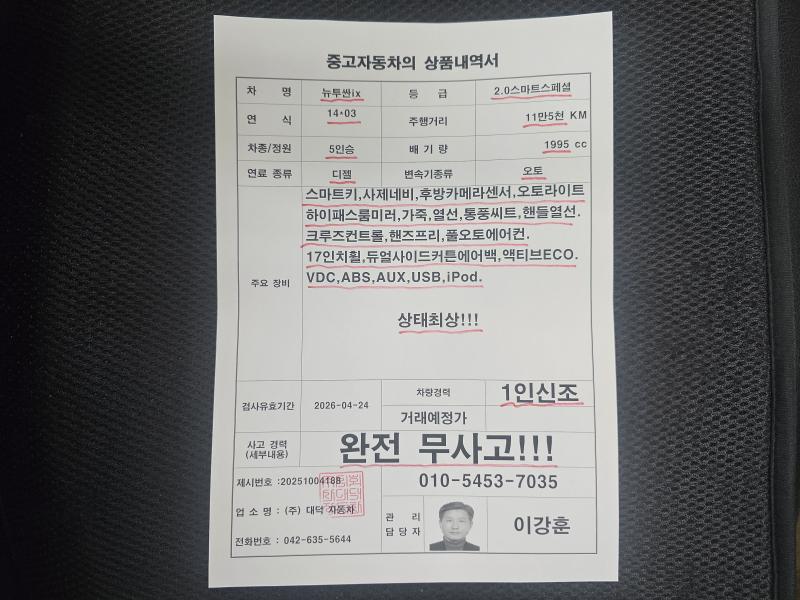 중고자동차의 상품내역서
차 명 뉴투싼ix 등 급 2.0스마트스페셜
연 식 14*03 주행거리 11만5천 KM
차종/정원 5인승 배 기 량 1995 cc
연료 종류 디젤 변속기종류 오토
주요 장비
스마트키,사제네비,후방카메라센서,오토라이트
하이패스룸미러,가죽,열선,통풍씨트,핸들열선.
크루즈컨트롤,핸즈프리,풀오토에어컨.
17인치휠,듀얼사이드커튼에어백,액티브ECO.
VDC,ABS,AUX,USB,iPod.
상태최상!!!
검사유효기간 2026-04-24 차량경력 1인신조
거래예정가
사고 경력
(세부내용)
완전 무사고!!!
제시번호 :2025100418B
010-5453-7035
업 소 명 : (주) 대덕 자동차
관 리
담 당 자
이강훈
전화번호 : 042-635-5644